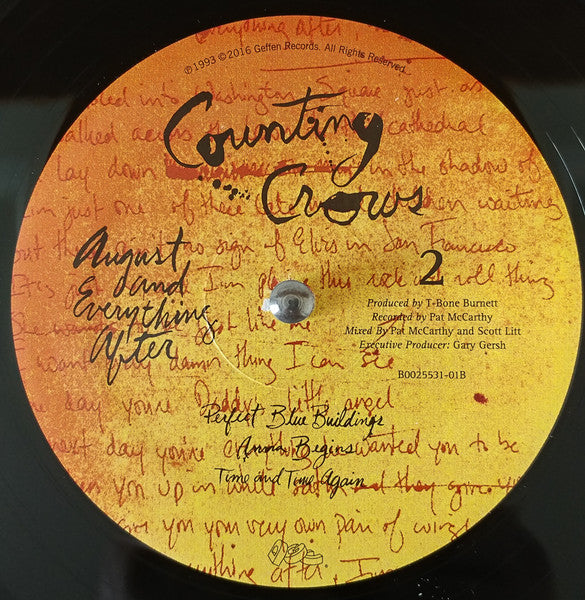 everything after,
℗1993 ©2016 Geffen Records. All Rights Reserved.
into Washington Square just as
walked across the cathedral
lay down in the shadow of
I'm just one of these waiting
out the sign of Elvis in San Francisco
Counting
Crows
August
and
Everything
After
2
this rock and roll thing
Produced by T-Bone Burnett
Recorded by Pat McCarthy
Mixed By Pat McCarthy and Scott Litt
Executive Producer: Gary Gersh
B0025531-01B
like me
want every damn thing I can see
day you're Daddy's little angel
Perfect Blue Buildings
next day you're everything wanted you to be
Anna Begins
Time and Time Again
you up in and they give you
give you your very own pair of wings
after,